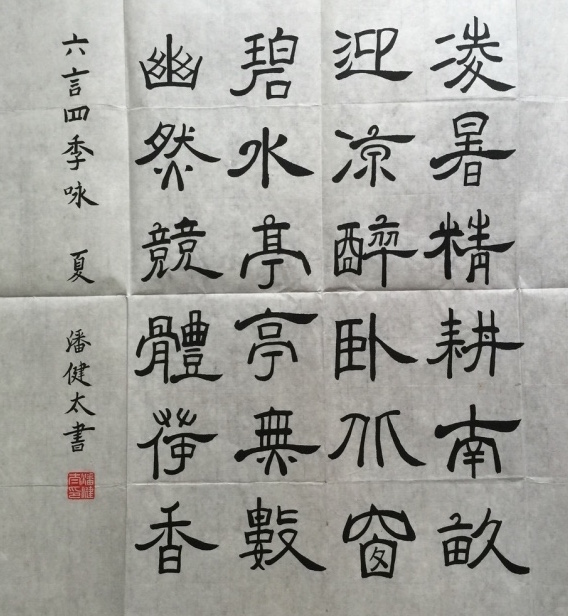 凌暑精耕南畝
迎凉醉卧北窗
碧水亭亭無數
幽然競體荷香
六言四季咏 夏 潘健太書
潘健太印